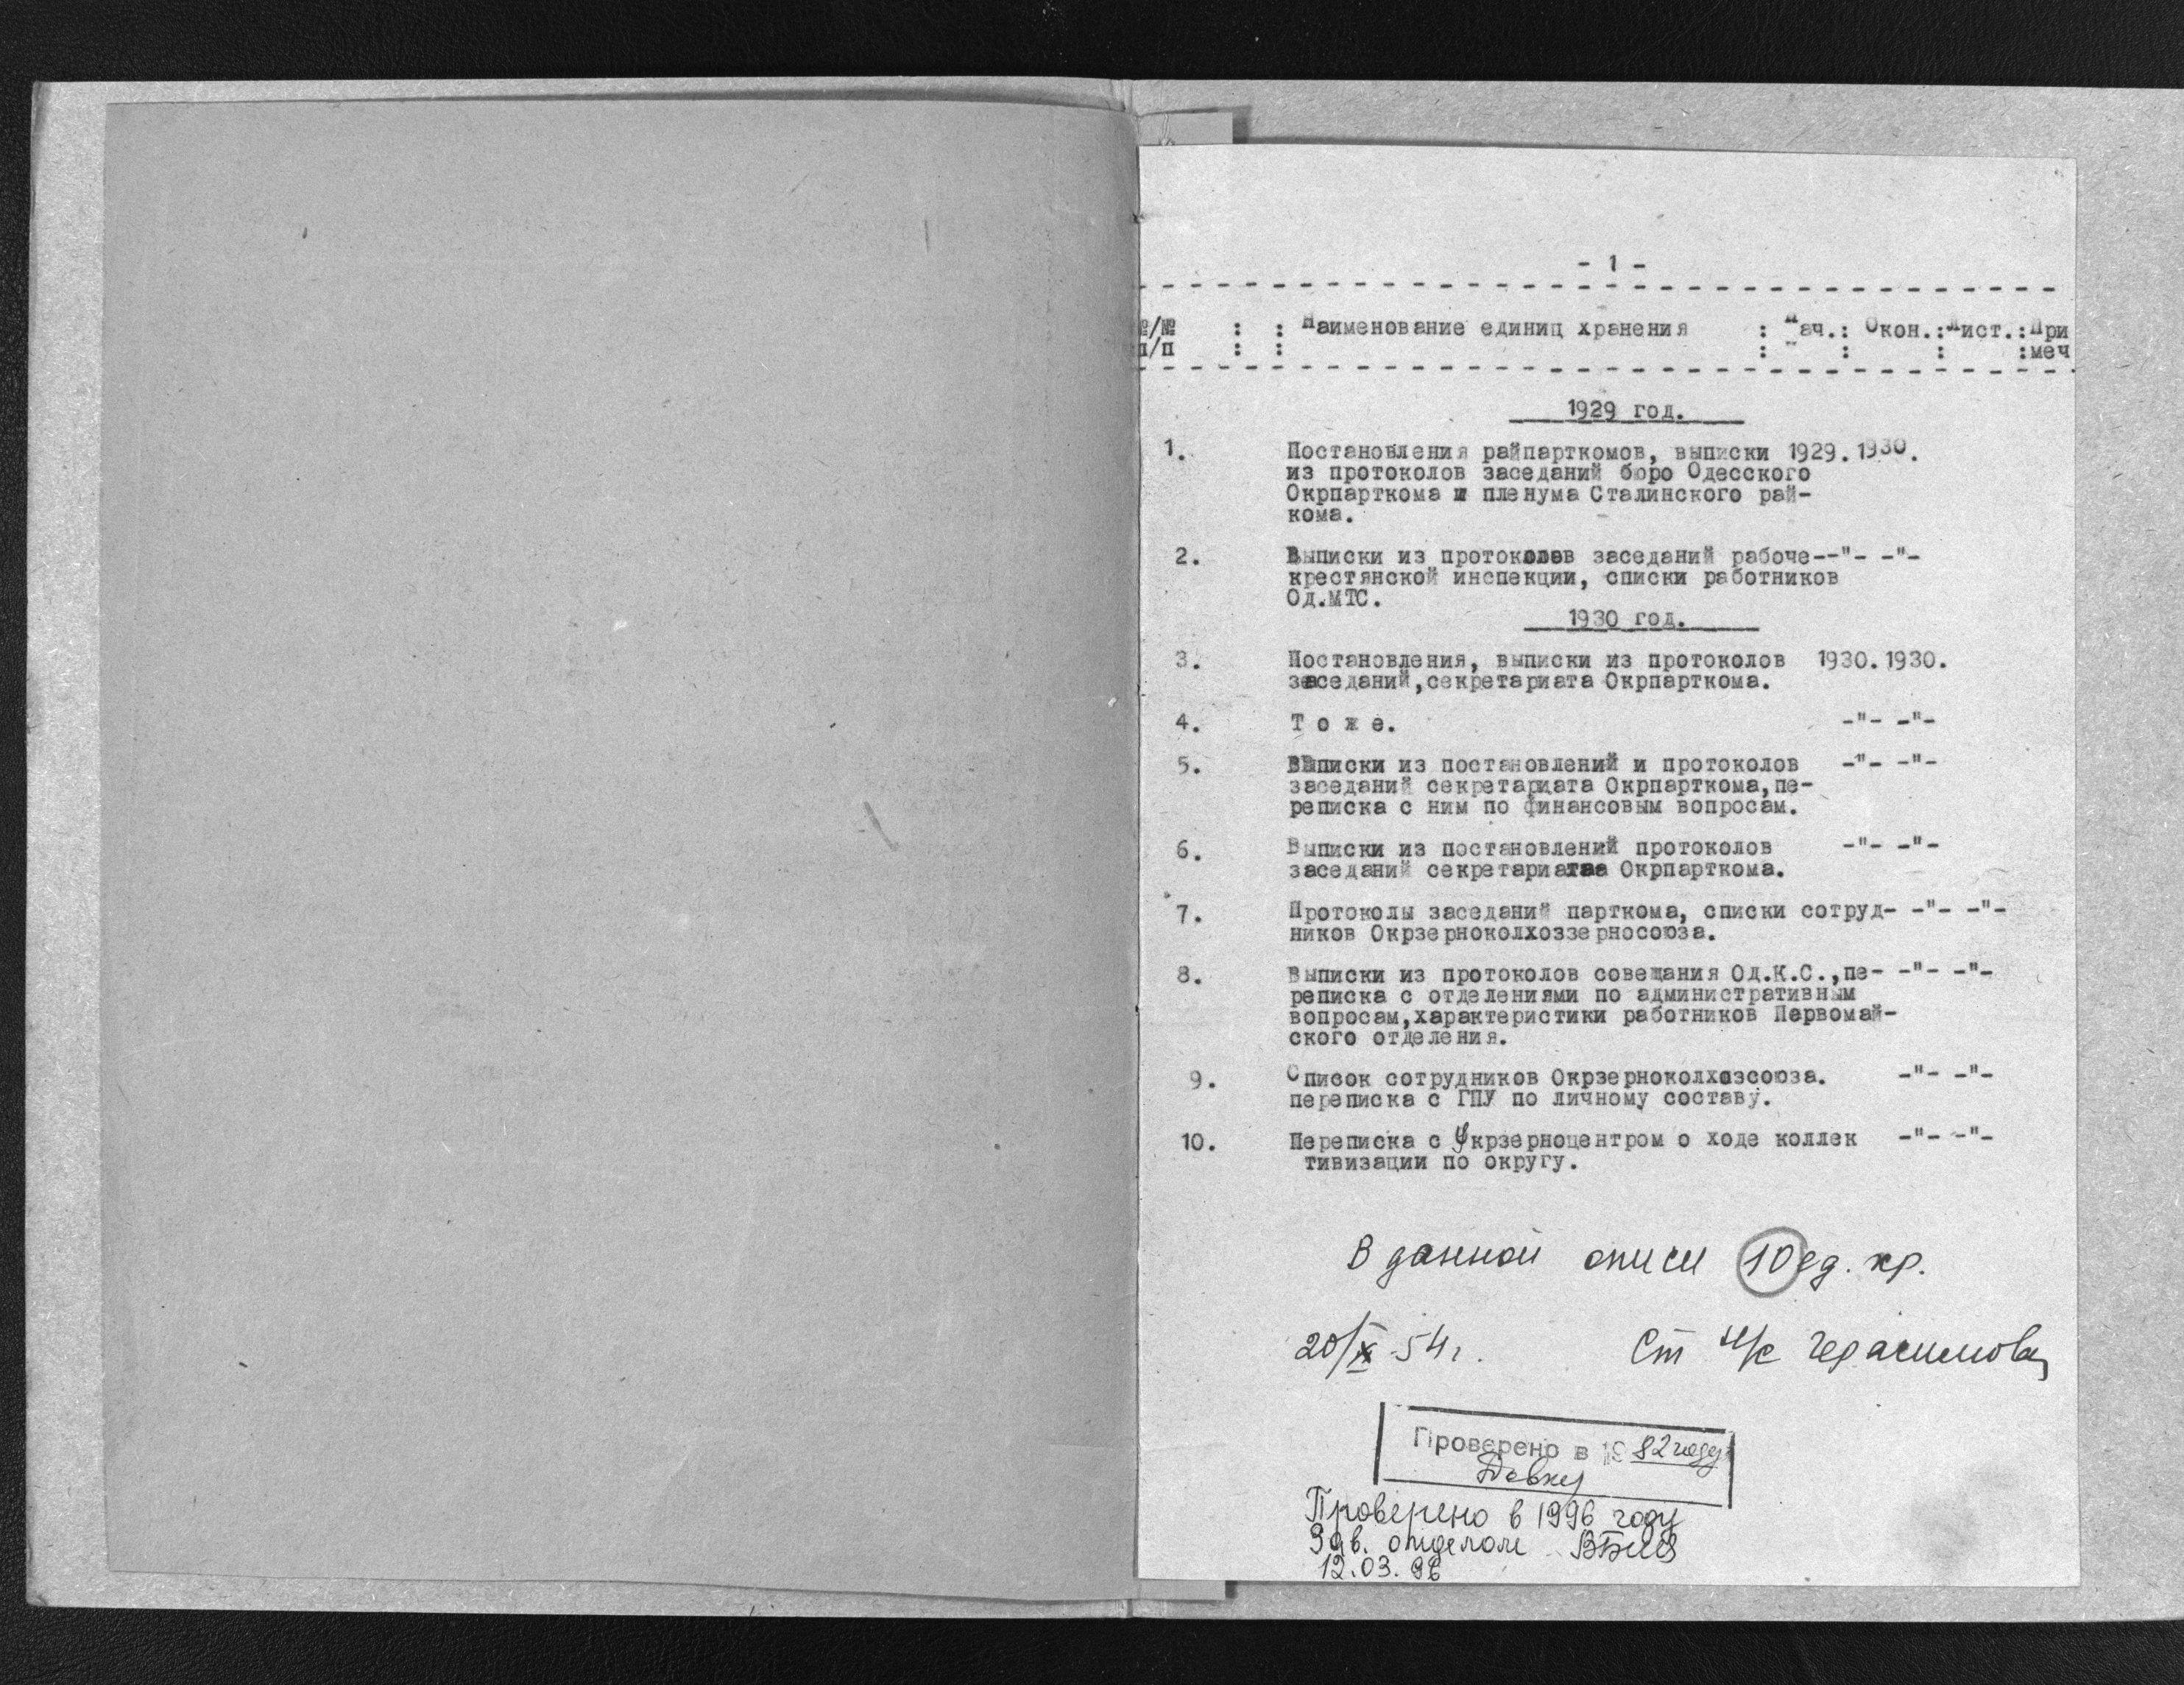 - 1 -
№/№ : : Наименование единиц хранения : Нач.: Окон.:Лист.:При
п/п : : : : : :меч
1929 год.
1. Постановления райпарткомов, выписки 1929.1930.
из протоколов заседаний бюро Одесского
Окрпарткома и пленума Сталинского рай-
кома.
2. Выписки из протоколов заседаний рабоче--"- -"-
крестянской инспекции, списки работников
Од.МТС.
1930 год.
3. Постановления, выписки из протоколов 1930.1930.
заседаний,секретариата Окрпарткома.
4. Т о ж е. -"- -"-
5. Выписки из постановлений и протоколов -"- -"-
заседаний секретариата Окрпарткома,пе-
реписка с ним по финансовым вопросам.
6. Выписки из постановлений протоколов -"- -"-
заседаний секретариатаа Окрпарткома.
7. Протоколы заседаний парткома, списки сотруд- -"- -"-
ников Окрзерноколхоззерносоюза.
8. Выписки из протоколов совещания Од.К.С.,пе- -"- -"-
реписка с отделениями по административным
вопросам,характеристики работников Первомай-
ского отделения.
9. Список сотрудников Окрзерноколхозсоюза. -"- -"-
переписка с ГПУ по личному составу.
10. Переписка с Укрзерноцентром о ходе коллек -"- -"-
тивизации по округу.
В данной описи 10 ед. хр.
20/X-54 г. Ст н/с Герасимова
Проверено в 1982 году
Проверено в 1996 году
Зав. отделом
12.03.96